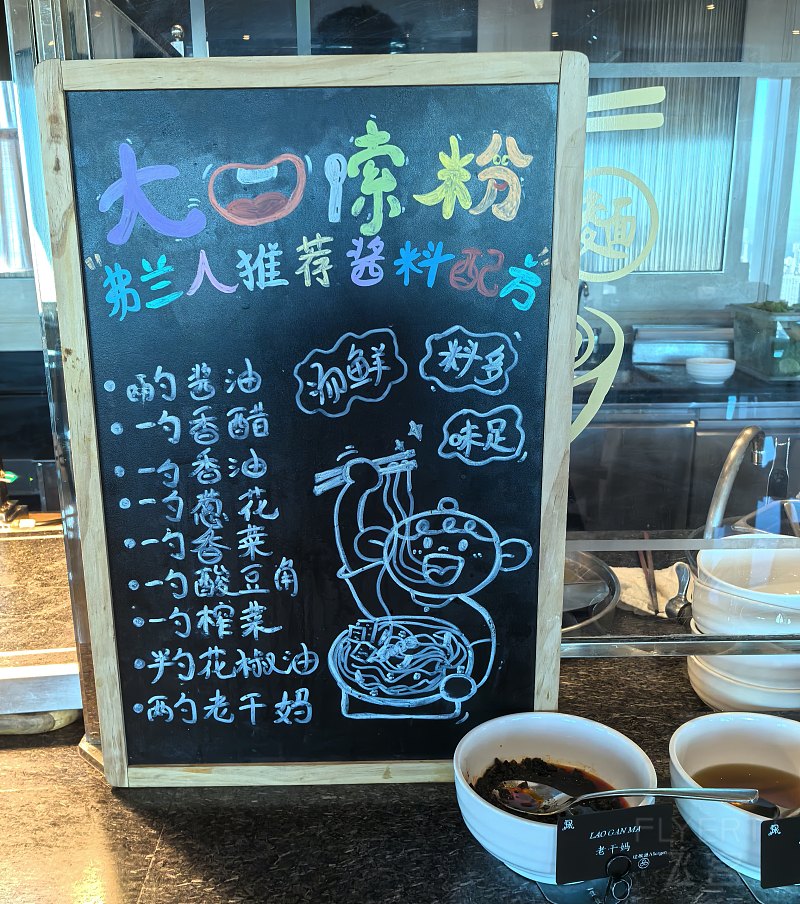 大口嗦粉
"弗兰人推荐酱料配方"
汤鲜
料多
味足
·两勺酱油
·一勺香醋
·一勺香油
·一勺葱花
·一勺香菜
·一勺酸豆角
·一勺榨菜
·半勺花椒油
·两勺老干妈
麵
LAO GAN MA
老干妈
FLYERT